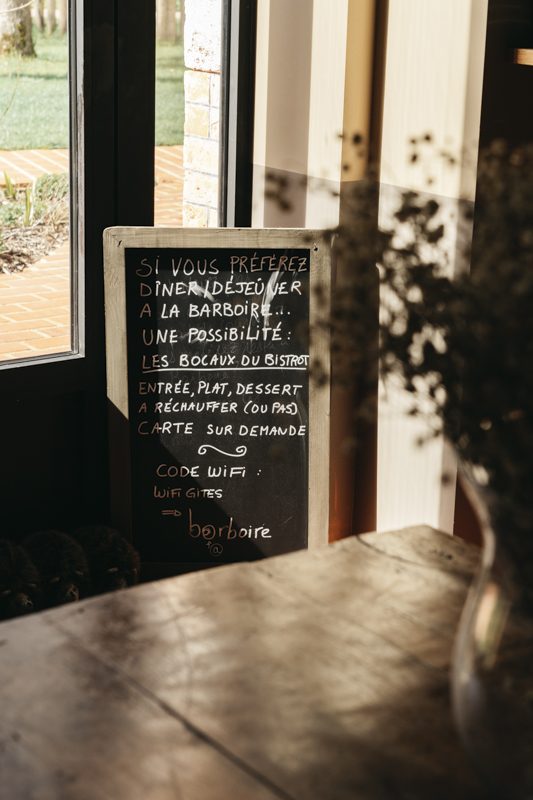 SI VOUS PRÉFÉREZ
DÎNER/DÉJEÛNER
A LA BARBOIRE...
UNE POSSIBILITÉ:
LES BOCAUX DU BISTROT
ENTRÉE, PLAT, DESSERT
A RÉCHAUFFER (OU PAS)
CARTE SUR DEMANDE
CODE WIFI :
WIFI GITES
⇒ b@rboire
@